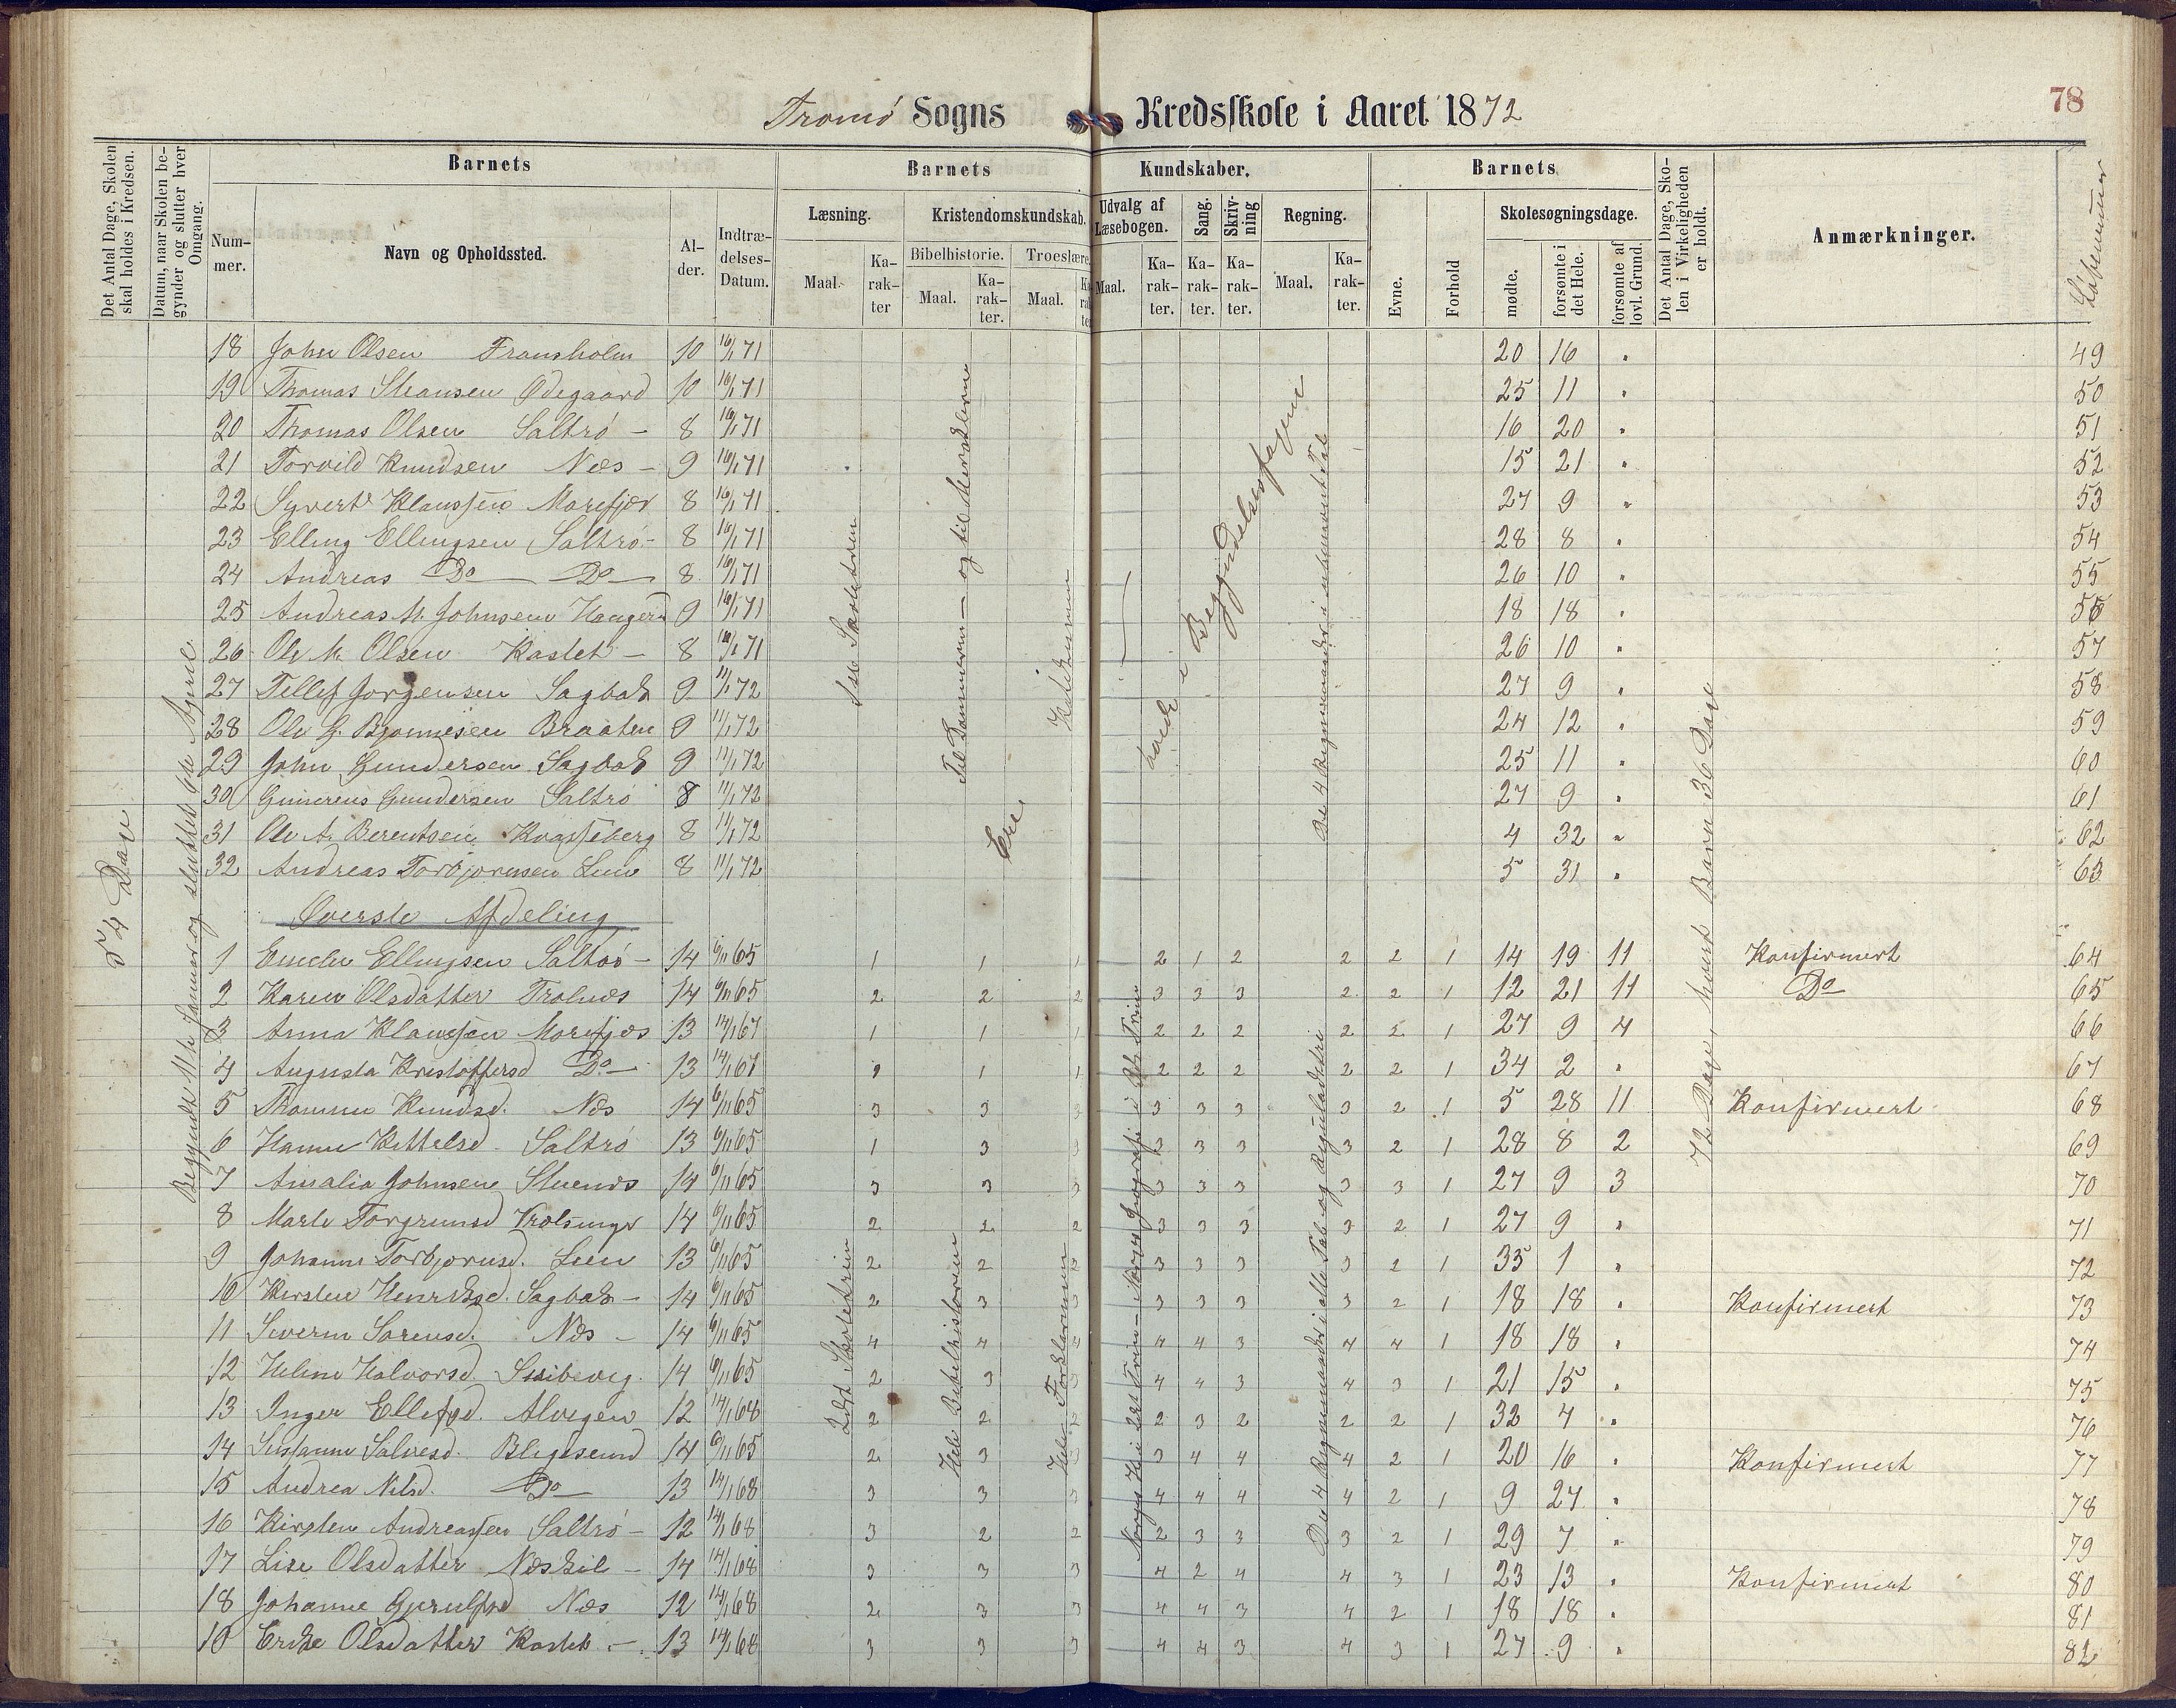 78
Tromø Sogns Kredsskole i Aaret 1872
Det Antal Dage, Skolen skal holdes i Kredsen.
Datum, naar Skolen begynder og slutter hver Omgang.
Barnets
Barnets Kundskaber.
Barnets
Det Antal Dage, Skolen i Virkeligheden er holdt.
Anmærkninger.
Løbenumer
Nummer.
Navn og Opholdssted.
Alder.
Indtrædelses-Datum.
Læsning.
Kristendomskundskab.
Udvalg af Læsebogen.
Sang.
Skrivning
Regning.
Evne.
Forhold
Skolesøgningsdage.
Bibelhistorie.
Troeslære.
Maal.
Karakter
Maal.
Karakter.
Maal.
Karakter
Maal.
Karakter.
Karakter.
Karakter.
Maal.
Karakter.
mødte.
forsømte i det Hele.
forsømte af lovl. Grund.
54 Dage
Begyndt 11te Januar og sluttet 6te April.
72 Dage, hvert Barn 36 Dage
18 John Olsen Fransholm 10 16/1 71 20 16 " 49
19 Thomas Stiansen Ødegaard 10 16/1 71 25 11 " 50
20 Thomas Olsen Saltrø – 8 16/1 71 16 20 " 51
21 Torvild Knudsen Næs – 9 16/1 71 15 21 " 52
22 Syvert Klaussen Morefjær 8 16/1 71 27 9 " 53
23 Elling Ellingsen Saltrø – 8 16/1 71 28 8 " 54
24 Andreas Do Do 8 16/1 71 26 10 " 55
25 Andreas M. Johnsen 9 16/1 71 18 18 " 56
26 Ole M. Olsen Kastet – 8 16/1 71 26 10 " 57
27 Tellef Jørgensen Sagbak 9 11/1 72 27 9 " 58
28 Ole G. Bjønnesen Braaten 9 11/1 72 24 12 " 59
29 John Gundersen Sagbak 9 11/1 72 25 11 " 60
30 Gundersen Saltrø 8 11/1 72 27 9 " 61
31 Ole A. Berentsen 8 11/1 72 4 32 " 62
32 Andreas Torbjørnsen Lien 8 11/1 72 5 31 " 63
Øverste Afdeling
1 Ellingsen Saltrø – 14 6/11 65 1 1 1 2 1 2 2 2 1 14 19 11 Konfirmert 64
2 Karen Olsdatter Trolnæs 14 6/11 65 2 2 2 3 3 3 2 2 1 12 21 11 Do 65
3 Anna Klaussen Morefjær 13 14/1 67 1 1 1 2 2 2 2 2 1 27 9 4 66
4 Augusta Kristoffersd. Do 13 14/1 67 1 1 1 2 2 2 2 2 1 34 2 " 67
5 Thomine Knudsd. Næs 14 6/11 65 3 3 3 3 3 3 3 2 1 5 28 11 Konfirmert 68
6 Hanne Kittelsd. Saltrø 13 6/11 65 1 3 3 3 3 3 3 2 1 28 8 2 69
7 Amalia Johnsen Stuenes 14 6/11 65 3 3 3 3 3 3 3 3 1 27 9 3 70
8 Marte Torgrimsd. 14 6/11 65 2 2 2 3 3 3 3 2 1 27 9 " 71
9 Johanne Torbjørnsd. Lien 13 6/11 65 2 2 2 3 3 3 3 2 1 35 1 " 72
10 Kirsten Henriksd. Sagbak – 14 6/11 65 2 3 3 3 3 3 3 2 1 18 18 " Konfirmert 73
11 Severine Sørensd. Næs – 14 6/11 65 4 4 4 4 4 3 4 4 1 18 18 " 74
12 Helene Halvorsd. 14 6/11 65 2 3 3 4 4 3 4 3 1 21 15 " 75
13 Inger Ellefsd. Alvigen 12 14/1 68 2 2 2 2 3 2 2 2 1 32 4 " 76
14 Susanne Salvesd. 14 6/11 65 2 3 3 3 4 4 4 2 1 20 16 " Konfirmert 77
15 Andrea Nilsd. Do 13 14/1 68 3 3 3 4 4 4 4 2 1 9 27 " 78
16 Kirsten Andreassen Saltrø – 12 14/1 68 3 2 2 2 3 3 3 2 1 29 7 " 79
17 Lise Olsdatter Næskil – 14 14/1 68 3 3 3 4 2 4 4 3 1 23 13 " Konfirmert 80
18 Johanne Næs 12 14/1 68 2 3 3 4 4 3 4 2 1 18 18 " 81
19 Olsdatter Kastet – 13 14/1 68 3 3 3 4 4 3 4 3 1 27 9 " 82
Til Dommerne – og til
Katekismen
Ere
Begyndelsesfagene
De 4 Regningsmaader i ubenævnte Tal
2det Skoletrin
Hele Bibelhistorien
Hele Forklaringen
De 4 Regningsmaader i alle Tal og Reguladetri